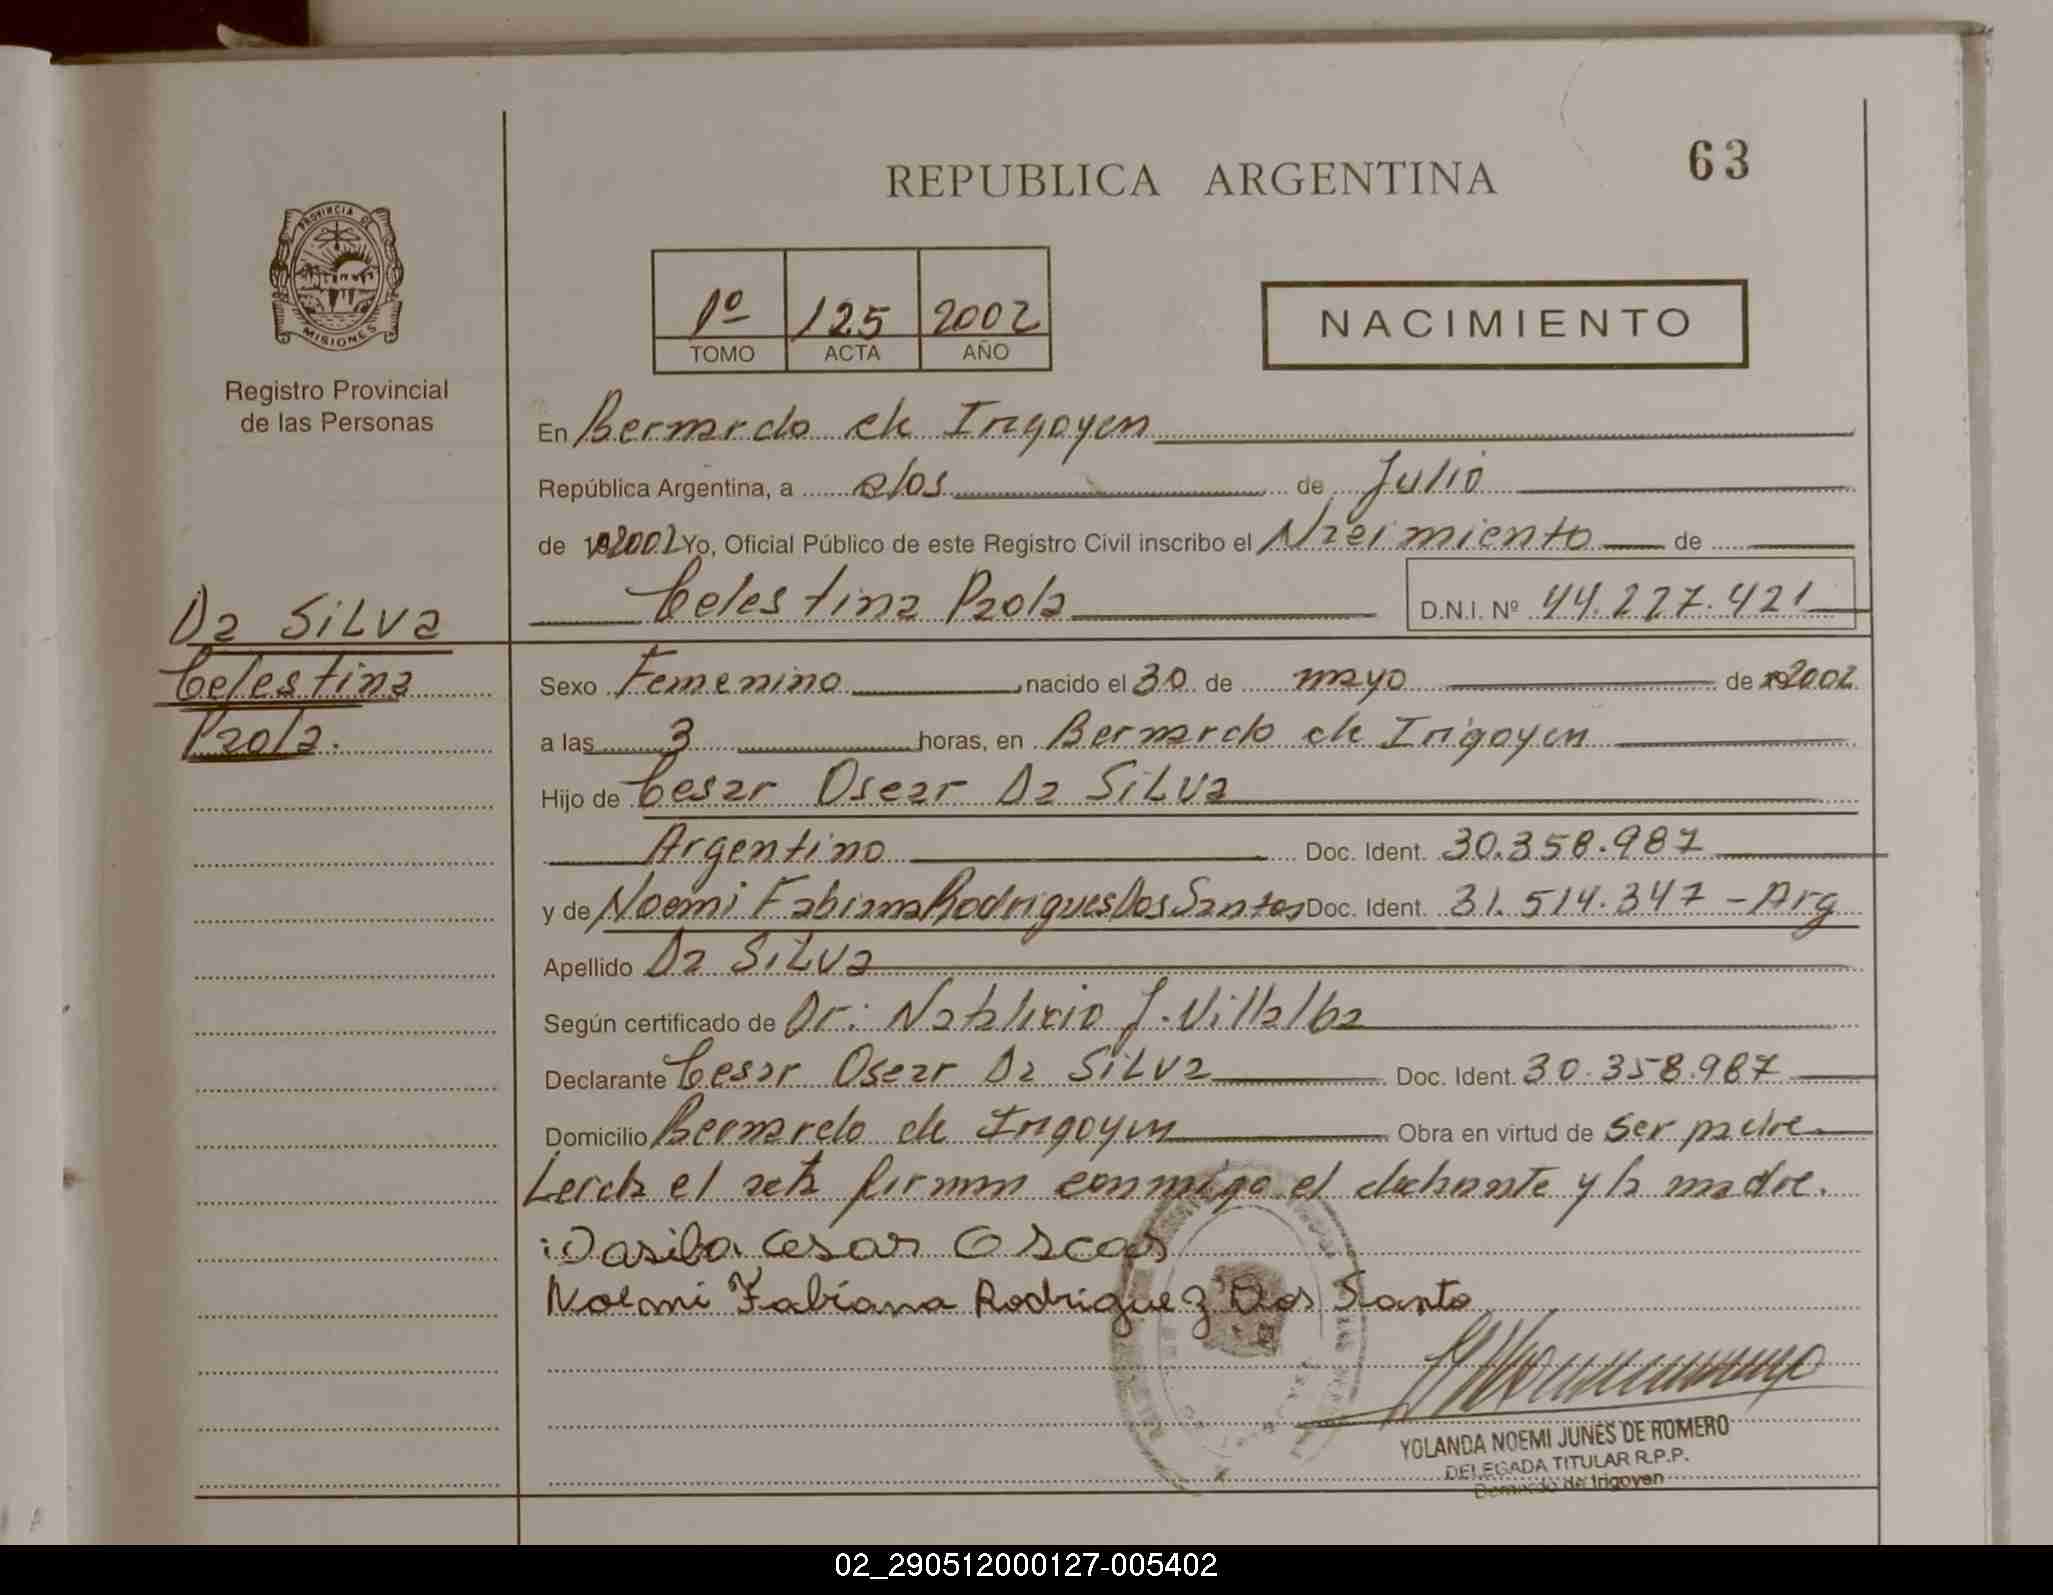 63
REPUBLICA ARGENTINA
PROVINCIA DE
MISIONES
Registro Provincial
de las Personas
1º 125 2002
TOMO ACTA AÑO
NACIMIENTO
En Bernardo de Irigoyen
República Argentina, a dos de Julio
de 2002 Yo, Oficial Público de este Registro Civil inscribo el Nacimiento de
Celestina Paola D.N.I. Nº 44.227.421
Da SiLva
Celestina
Paola.
Sexo Femenino nacido el 30 de mayo de 2002
a las 3 horas, en Bernardo de Irigoyen
Hijo de Cesar Oscar Da SiLva
Argentino Doc. Ident. 30.358.987
y de Noemi Fabiana Rodrigues Dos Santos Doc. Ident. 31.514.347 - Arg
Apellido Da SiLva
Según certificado de Dr: Natalicio J. Villalba
Declarante Cesar Oscar Da SiLva Doc. Ident. 30.358.987
Domicilio Bernardo de Irigoyen Obra en virtud de ser padre.
Leida el acta firman conmigo el declarante y la madre.
Dasilva Cesar Oscar
Noemi Fabiana Rodriguez Dos Santo
YOLANDA NOEMI JUNES DE ROMERO
DELEGADA TITULAR R.P.P.
Bernardo de Irigoyen
02_290512000127-005402